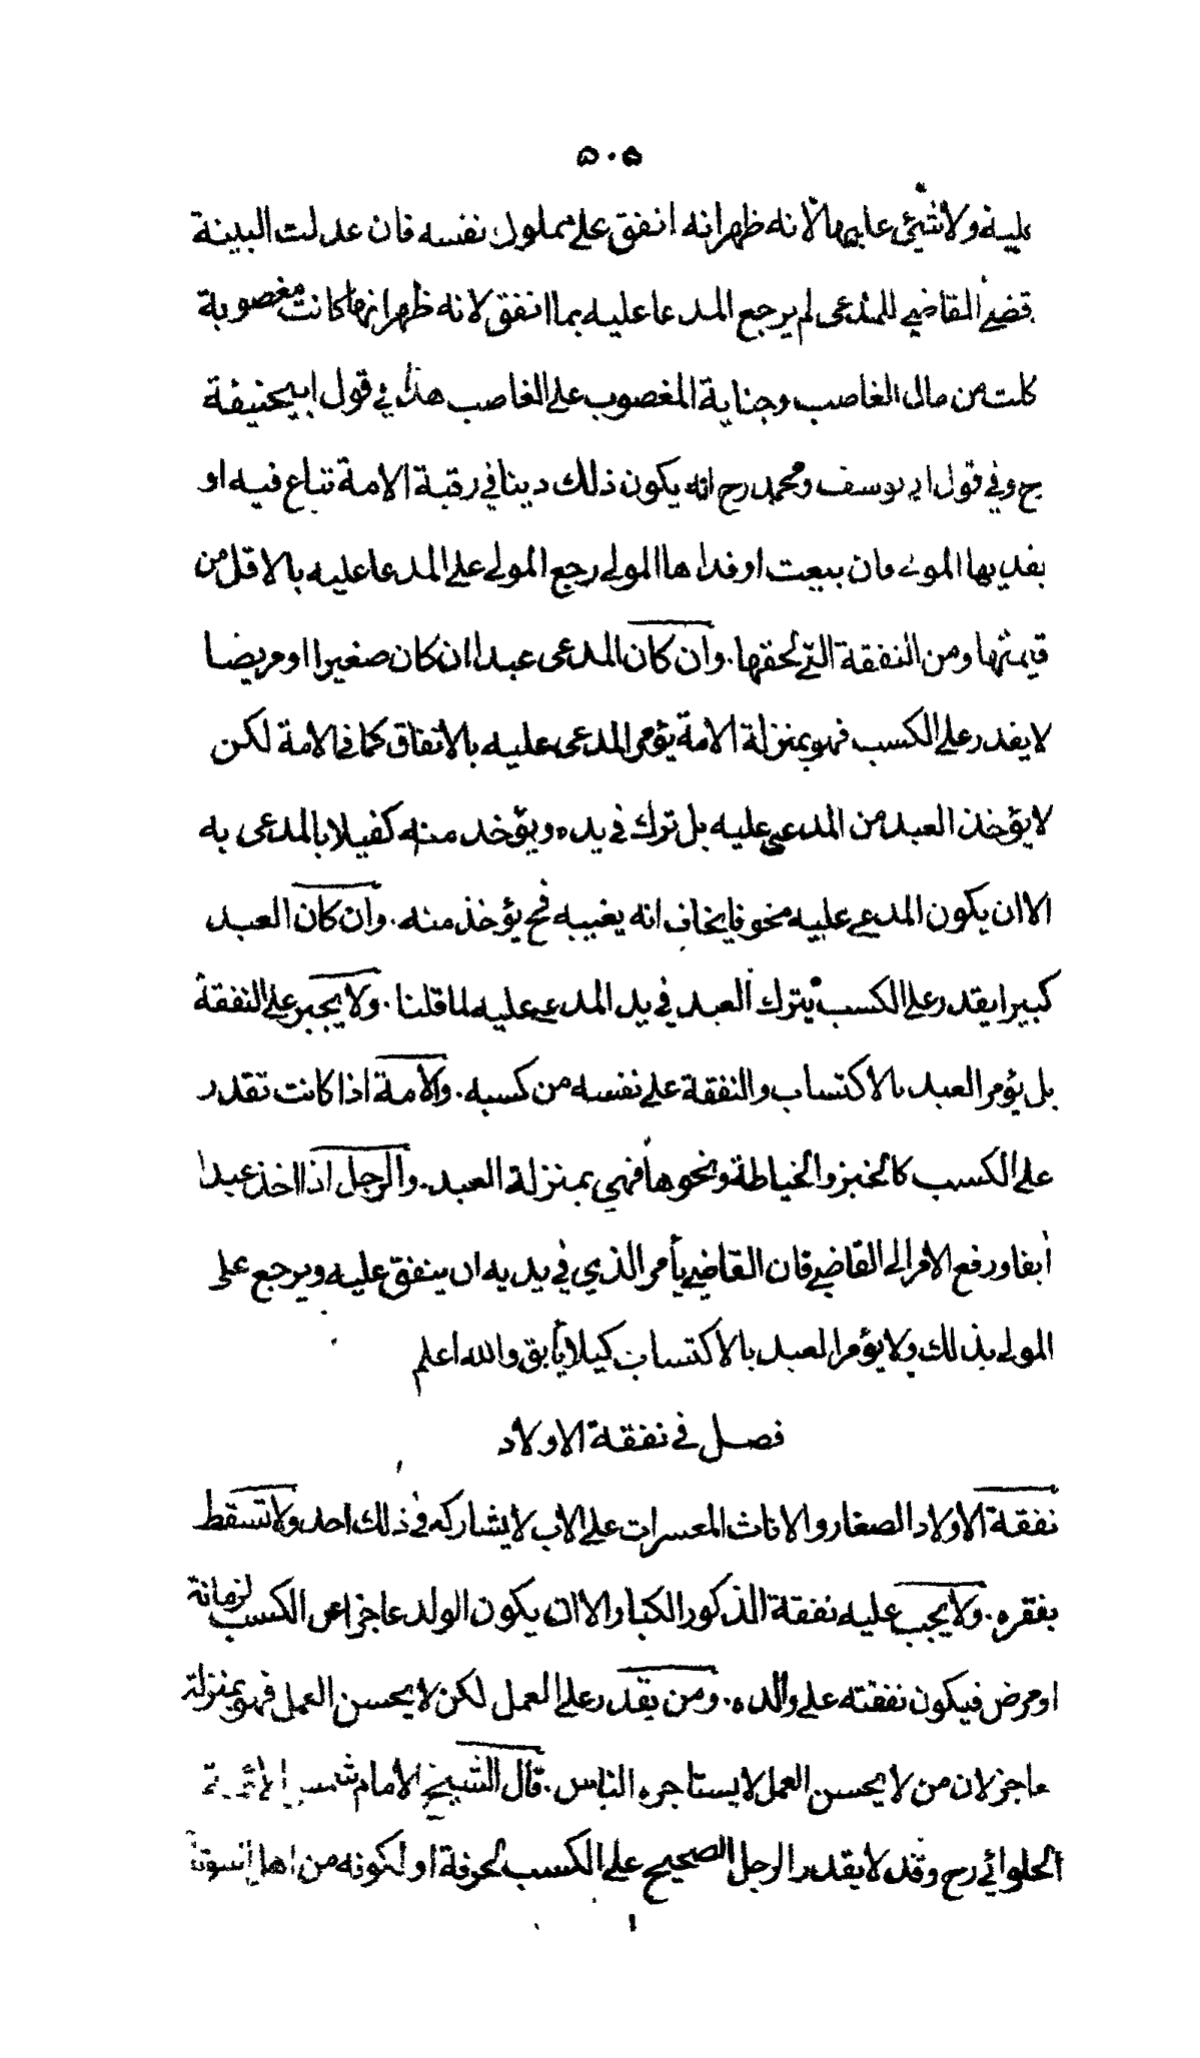 ٥٠٥
عليه ولا شئ عليها لانه ظهر انه انفق على مملوك نفسه فان عدلت البينة
قضى القاضي للمدعى لم يرجع المدعا عليه بما انفق لانه ظهر انها كانت مغصوبة
كلت من مال الغاصب وجناية المغصوب على الغاصب هذا في قول ابيحنيفة
رح وفي قول ابي يوسف ومحمد رح انه يكون ذلك دينا في رقبة الامة تباع فيه او
يفديها المولى فان بيعت او فداها المولى رجع المولى على المدعا عليه بالاقل من
قيمتها ومن النفقة التي لحقها . وان كان المدعى عبدا ان كان صغيرا او مريضا
لا يقدر على الكسب فهو بمنزلة الامة يؤمر المدعى عليه بالانفاق كما في الامة لكن
لا يؤخذ العبد من المدعى عليه بل ترك في يده ويؤخذ منه كفيلا بالمدعى به
الا ان يكون المدعى عليه مخوفا يخاف انه يغيبه فح يؤخذ منه . وان كان العبد
كبيرا يقدر على الكسب يترك العبد في يد المدعى عليه لما قلنا . ولا يجبر على النفقة
بل يؤمر العبد بالاكتساب والنفقة على نفسه من كسبه . والامة اذا كانت تقدر
على الكسب كالخبز والخياطة ونحوها فهي بمنزلة العبد . والرجل اذا اخذ عبدا
آبقا ورفع الامر الى القاضي فان القاضي يأمر الذي في يديه ان ينفق عليه ويرجع على
المولى بذلك ولا يؤمر العبد بالاكتساب كيلا يأبق والله اعلم
فصل في نفقة الاولاد
نفقة الاولاد الصغار والاناث المعسرات على الاب لا يشاركه في ذلك احد ولا تسقط
بفقره . ولا يجب عليه نفقة الذكور الكبار الا ان يكون الولد عاجزا عن الكسب لزمانة
او مرض فيكون نفقته على والده . ومن يقدر على العمل لكن لا يحسن العمل فهو بمنزلة
عاجز لان من لا يحسن العمل لا يستاجره الناس . قال الشيخ الامام شمس الائمة
الحلوائي رح وقد لا يقدر الرجل الصحيح على الكسب لحرفة او لكونه من اهل